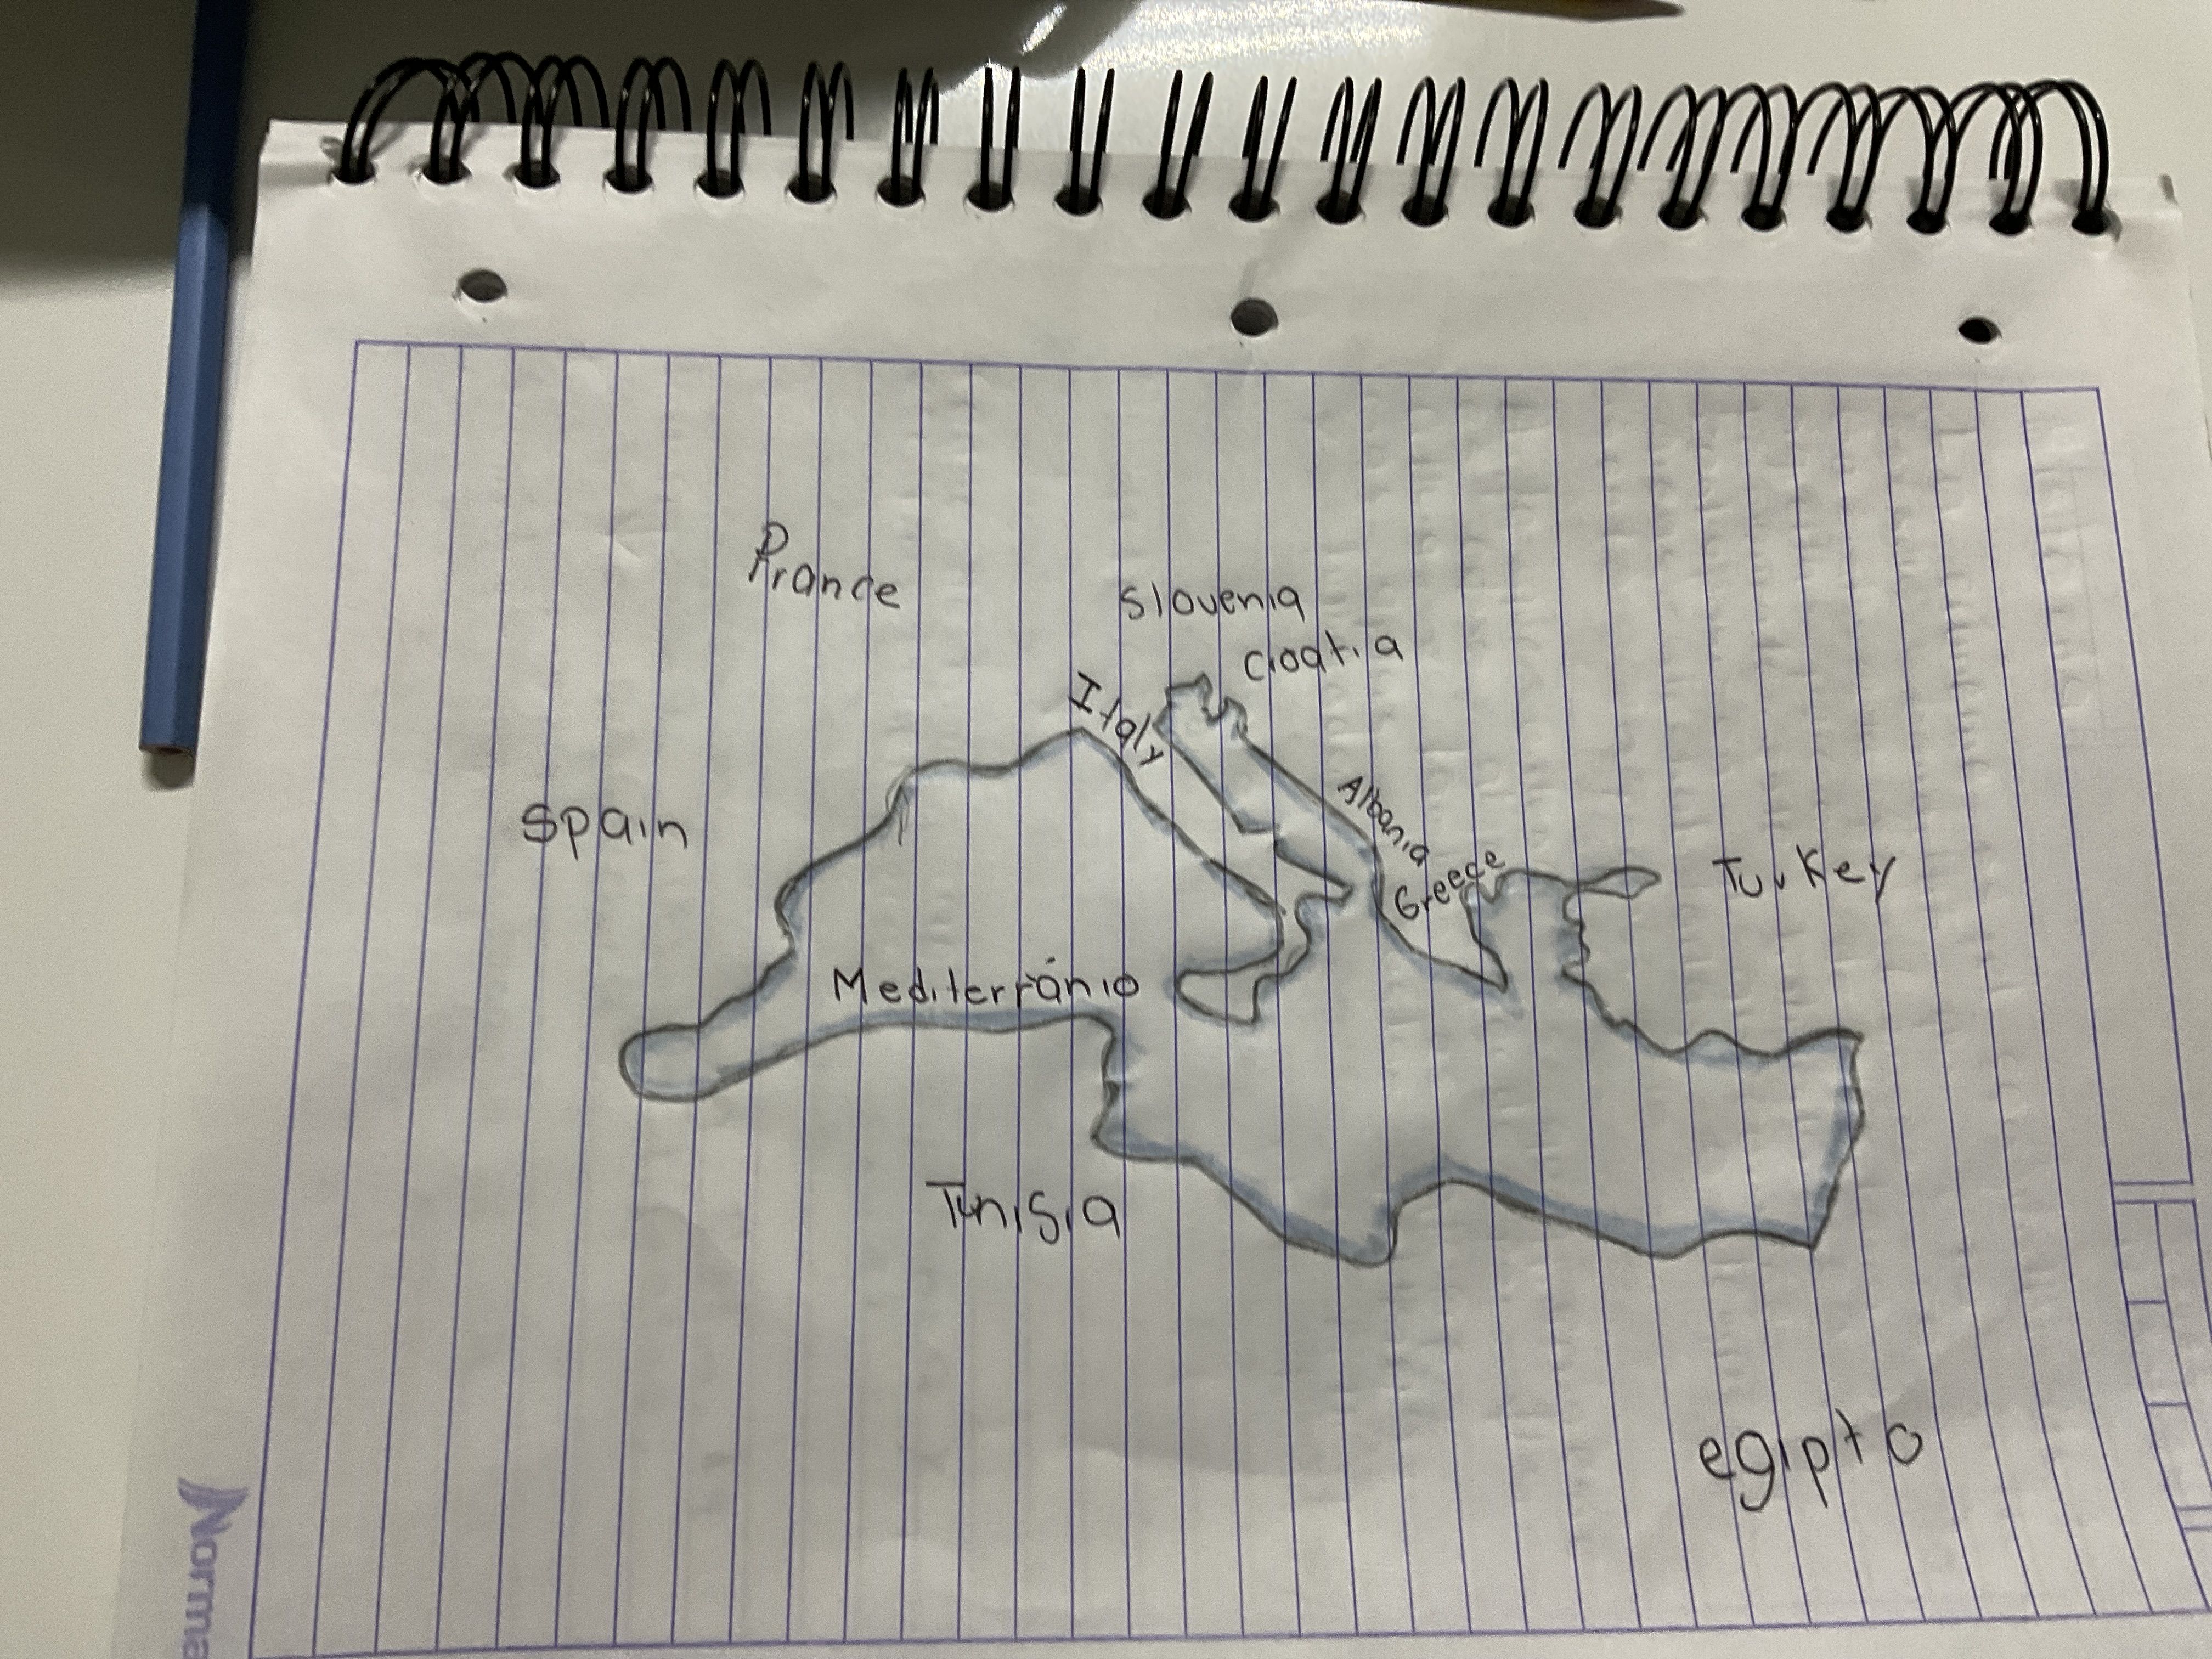 France
Slovenia
Croatia
Italy
Spain
Albania
Greece
Turkey
Mediterránio
Tunisia
egipto
Norma